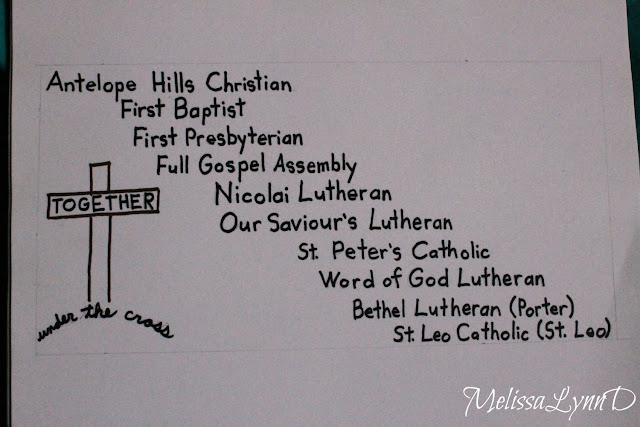 Antelope Hills Christian
First Baptist
First Presbyterian
Full Gospel Assembly
Nicolai Lutheran
Our Saviour's Lutheran
St. Peter's Catholic
Word of God Lutheran
Bethel Lutheran (Porter)
St. Leo Catholic (St. Leo)
TOGETHER
under the cross
MelissaLynnD